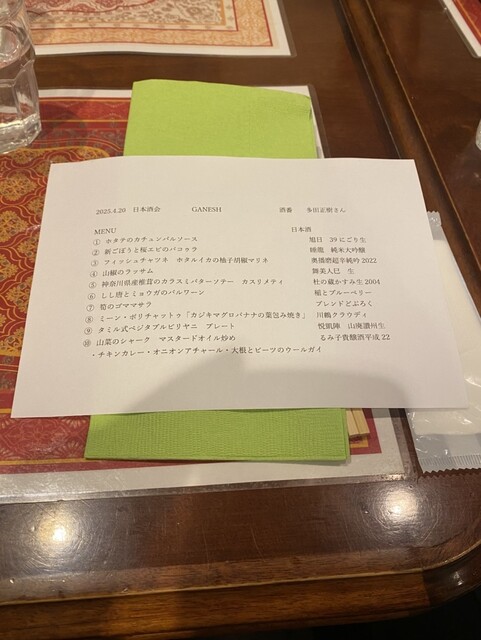 2025.4.20 日本酒会 GANESH 酒番 多田正樹さん
MENU 日本酒
① ホタテのカチェンバルソース 旭日 39にごり生
② 新ごぼうと桜エビのパコゥラ 睡龍 純米大吟醸
③ フィッシュチャツネ ホタルイカの柚子胡椒マリネ 奥播磨超辛純吟 2022
④ 山椒のラッサム 舞美人巳 生
⑤ 神奈川県産椎茸のカラスミバターソテー カスリメティ 杜の蔵かすみ生 2004
⑥ しし唐とミョウガのパルワーン 稲とブルーベリー
⑦ 筍のゴママサラ ブレンドどぶろく
⑧ ミーン・ポリチャットゥ「カジキマグロバナナの葉包み焼き」 川鶴クラウディ
⑨ タミル式ベジタブルビリヤニ プレート 悦凱陣 山廃讃州生
⑩ 山菜のシャーク マスタードオイル炒め るみ子貴醸酒平成22
・チキンカレー・オニオンアチャール・大根とビーツのウールガイ